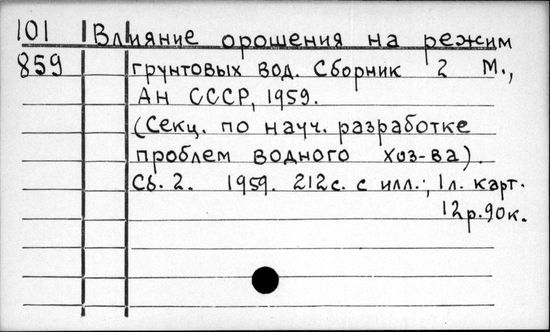 101 Влияние орошения на режим
859 грунтовых вод. Сборник 2 М.,
АН СССР, 1959.
(Секц. по науч. разработке
проблем водного хоз-ва).
Сб. 2. 1959. 212с. с илл.; 1л. карт.
12р.90к.